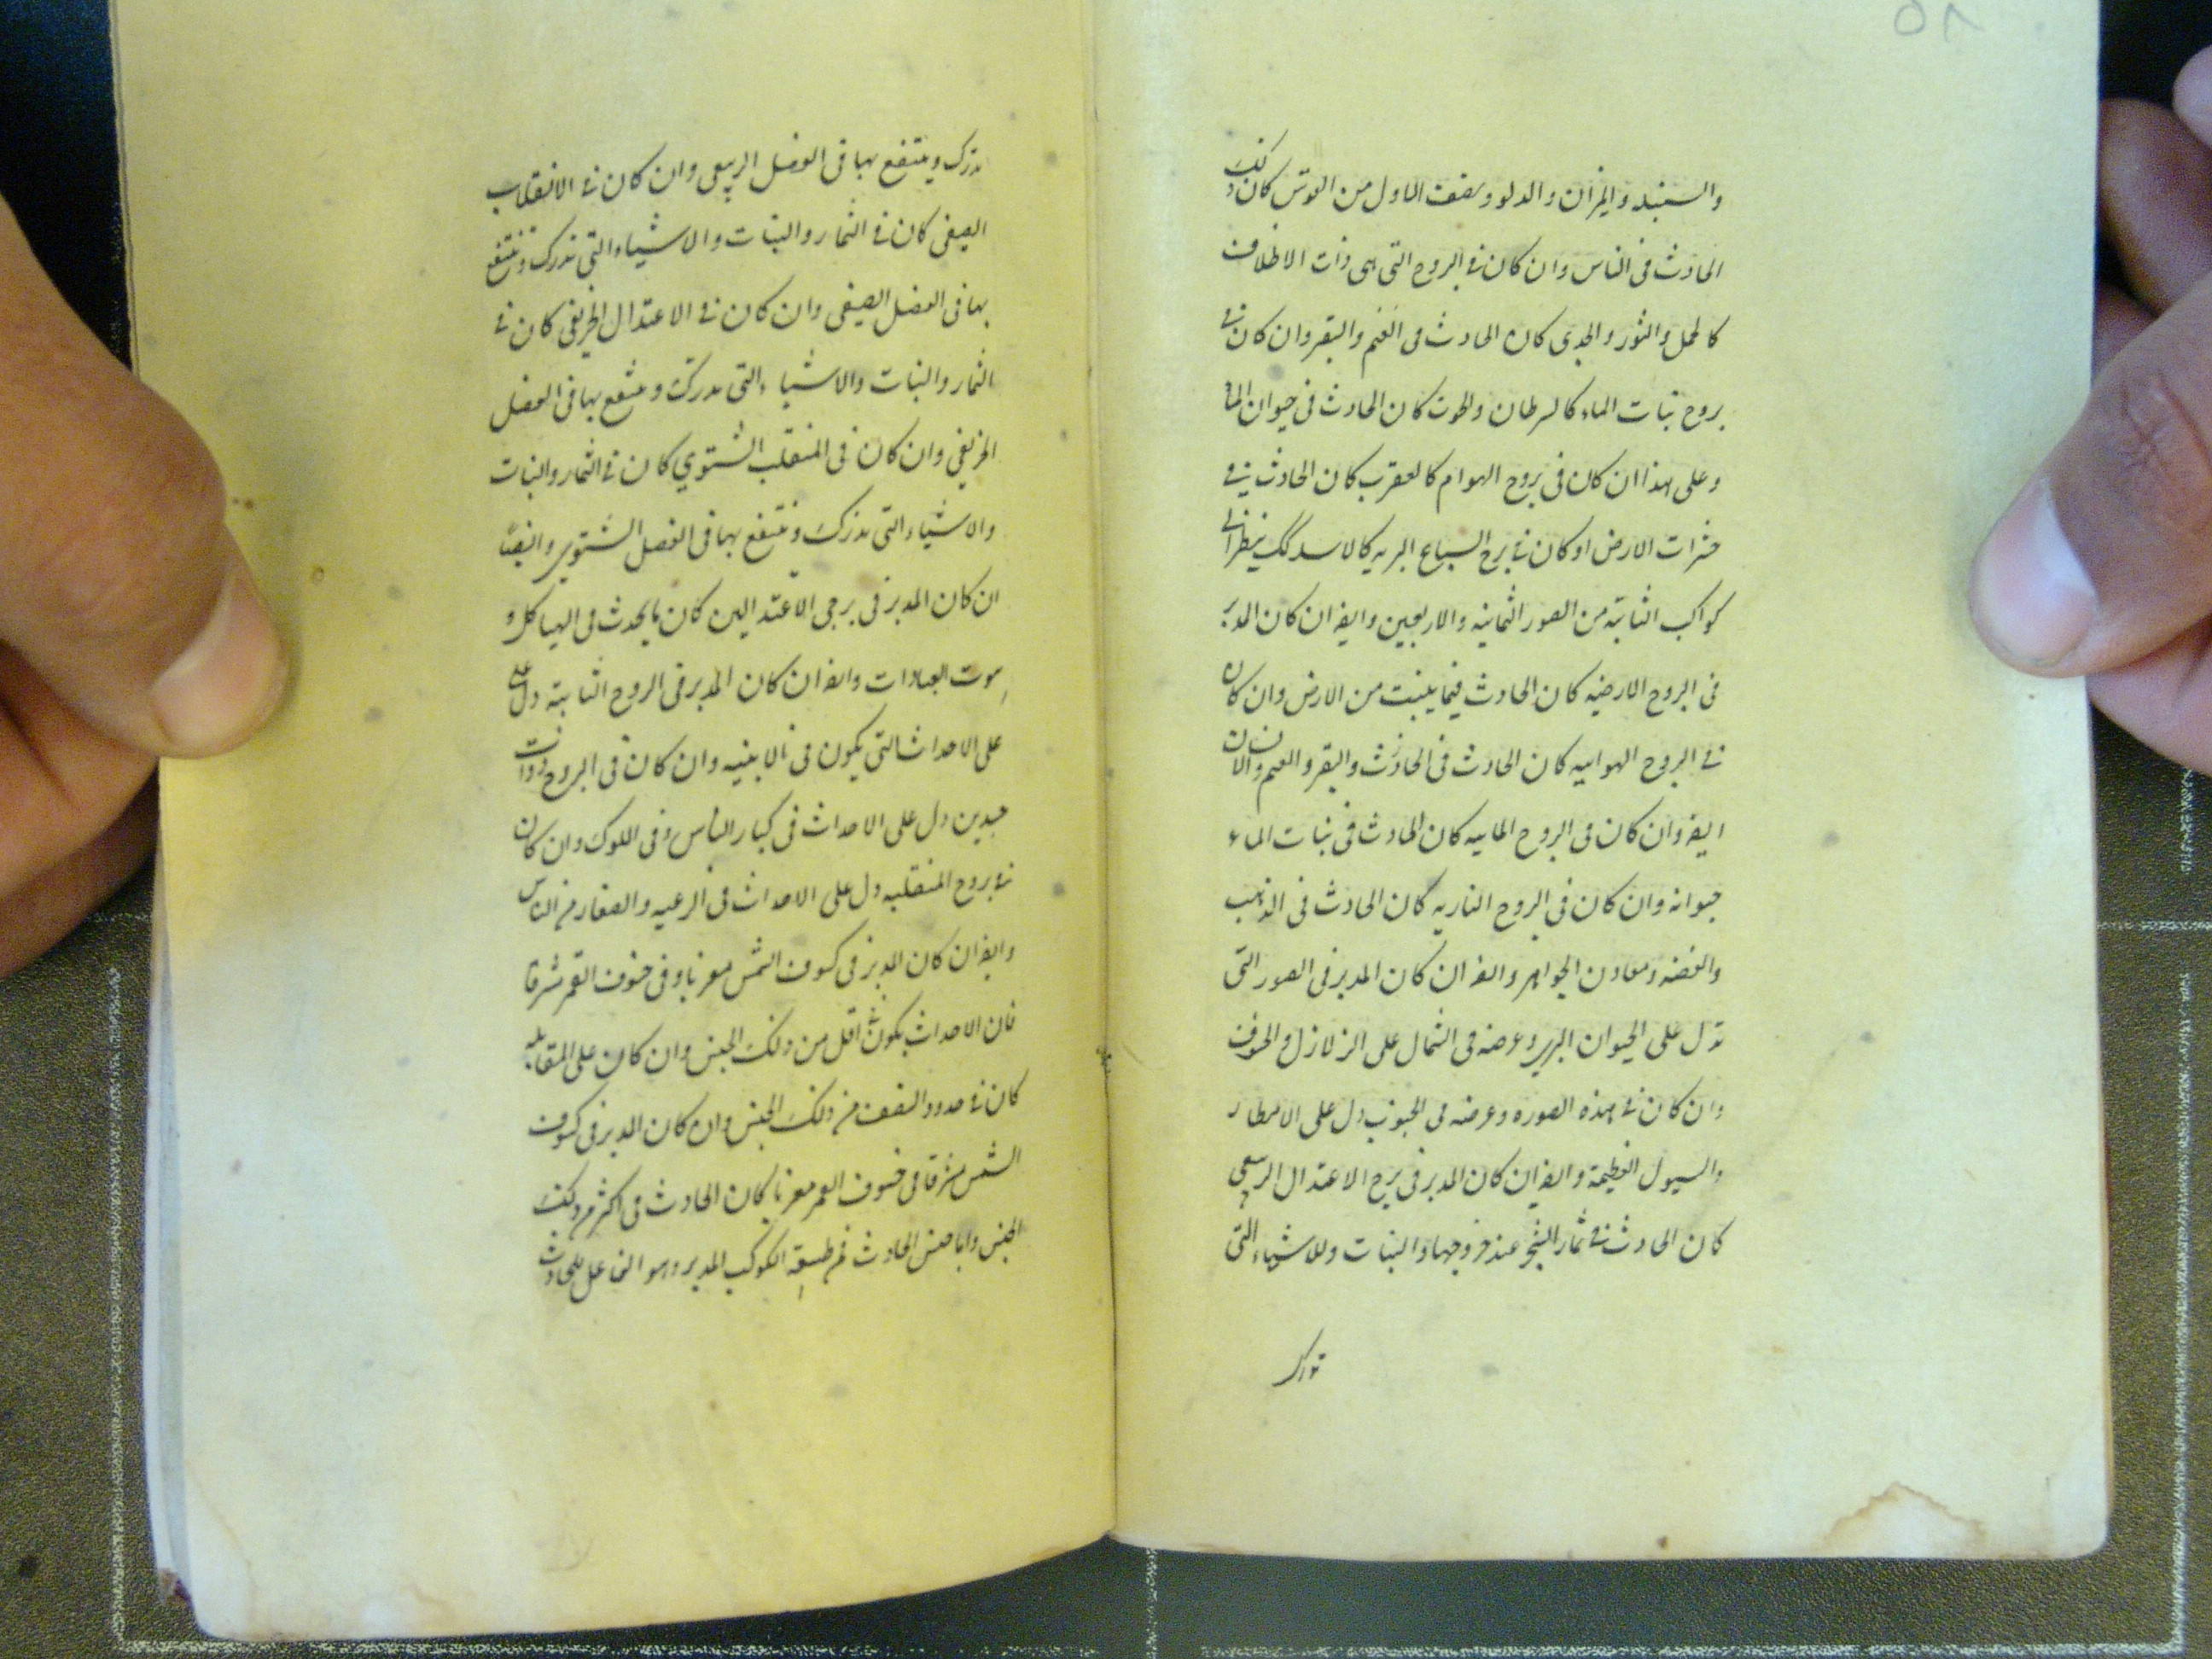 ٥٨
والسنبله والميزان والدلو ونصف الاول من القوس كان ذلك
الحادث فى الناس وان كان فى البروج التى هى ذات الاظلاف
كالحمل والثور والجدى كان الحادث فى الغنم والبقر وان كان فى
بروج نبات الماء كالسرطان والحوت كان الحادث فى حيوان الماء
وعلى هذا ان كان فى بروج الهوام كالعقرب كان الحادث فى
حشرات الارض او كان فى برج السباع البريه كالاسد ينظر الى
كواكب الثابتة من الصور الثمانيه والاربعين وايضا ان كان المدبر
فى البروج الارضيه كان الحادث فيما ينبت من الارض وان كان
فى البروج الهوائيه كان الحادث فى الحادث والبقر والغنم والانسان
ايضا وان كان فى البروج المائيه كان الحادث فى نبات الماء
حيوانه وان كان فى البروج الناريه كان الحادث فى الذهب
والفضه ومعادن الجواهر وايضا ان كان المدبر فى الصور التى
تدل على الحيوان البرى وعرضه فى الشمال على الزلازل والخسوف
وان كان فى هذه الصوره وعرضه فى الجنوب دل على الامطار
والسيول العظيمة وايضا ان كان المدبر فى برج الاعتدال الربيعى
كان الحادث فى ثمار الشجر عند خروجها والنبات وللاشياء التى
تدرك
تدرك وينتفع بها فى الفصل الربيعى وان كان فى الانقلاب
الصيفى كان فى الثمار والنبات والاشياء التى تدرك وتنتفع
بها فى الفصل الصيفى وان كان فى الاعتدال الخريفى كان فى
الثمار والنبات والاشياء التى تدرك وينتفع بها فى الفصل
الخريفى وان كان فى المنقلب الشتوي كان فى الثمار والنبات
والاشياء التى تدرك وينتفع بها فى الفصل الشتوى وايضا
ان كان المدبر فى برجى الاعتدالين كان ما يحدث فى الهياكل و
بيوت العبادات وايضا ان كان المدبر فى البروج الثابتة دل على
على الاحداث التى يكون فى الابنيه وان كان فى البروج ذوات
جسدين دل على الاحداث فى كبار الناس وفى الملوك وان كان
فى بروج المنقلبه دل على الاحداث فى الرعيه والصغار من الناس
وايضا ان كان المدبر فى كسوف الشمس مغربا وفى خسوف القمر مشرقا
فان الاحداث يكون اقل من ذلك الجنس وان كان على المقابله
كان فى حدود النصف من ذلك الجنس وان كان المدبر فى كسوف
الشمس مشرقا فى خسوف القمر مغربا كان الحادث فى اكثر من ذلك
الجنس واما جنس الحادث فمن طبيعة الكوكب المدبر وهو الفاعل للحادث